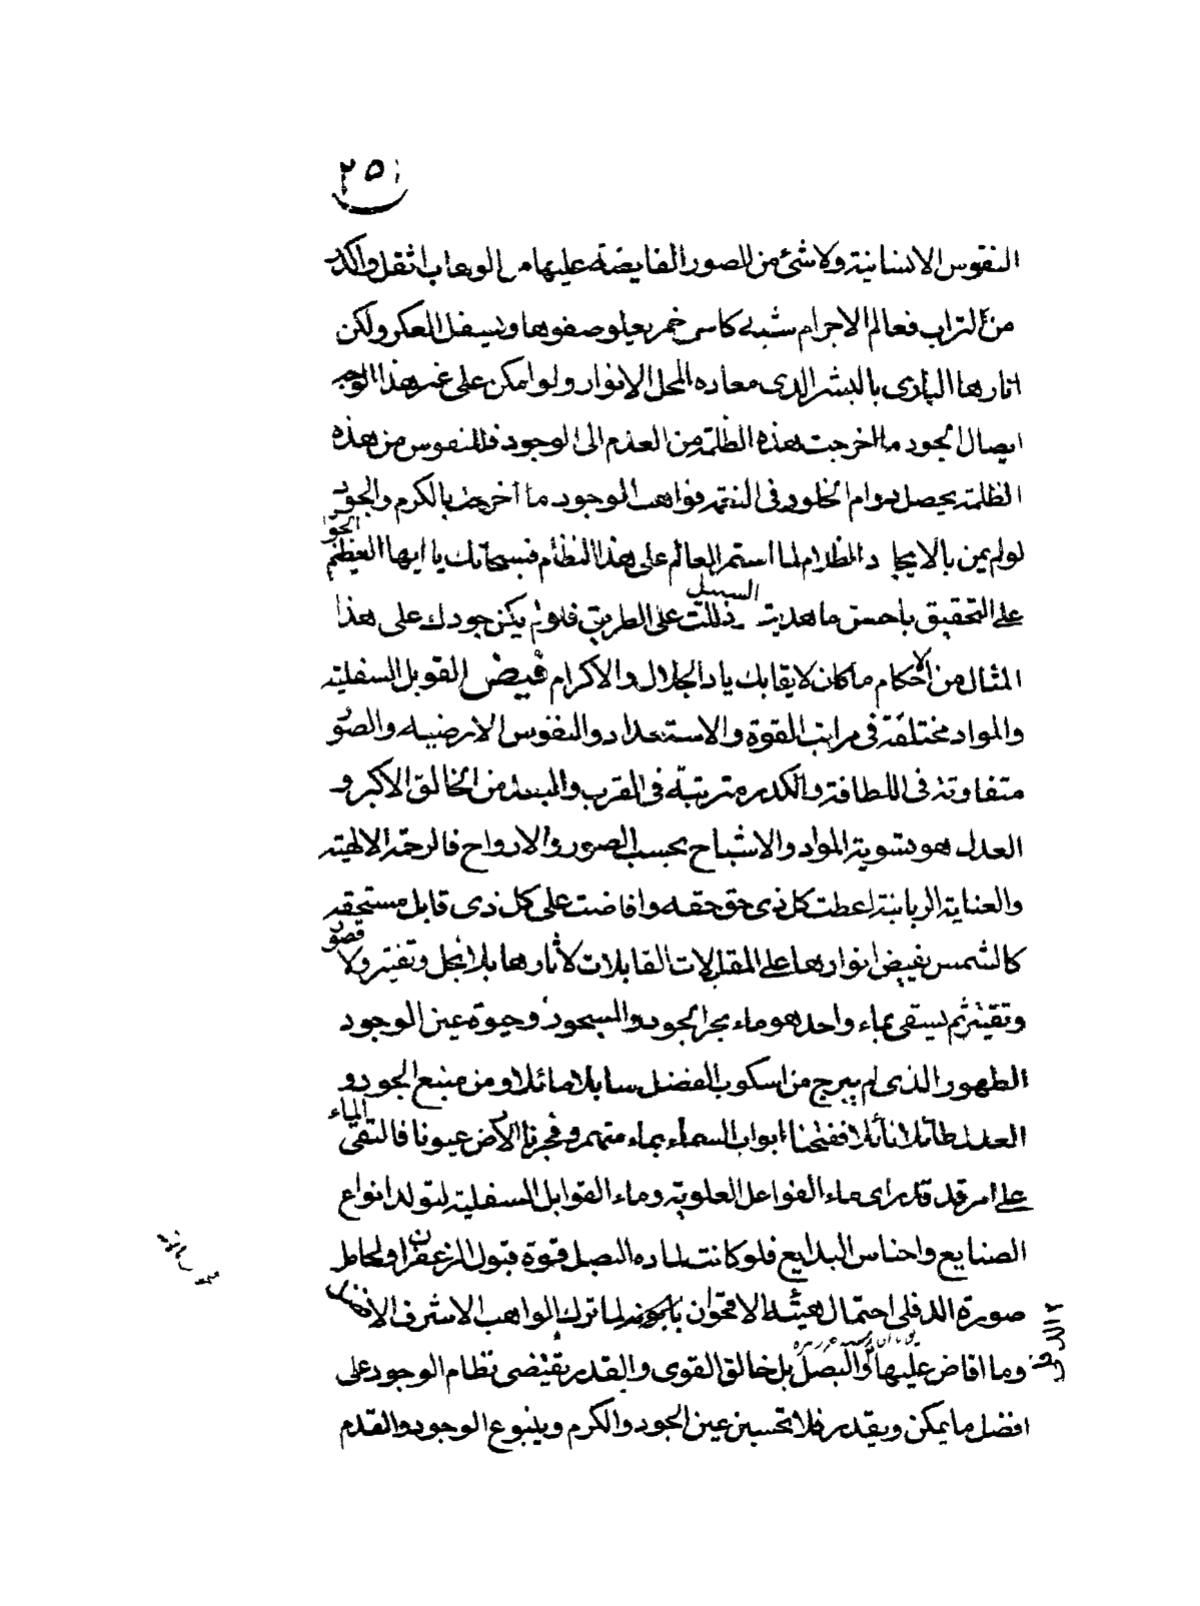 ٢٥١
النفوس الانسانية ولا شئ من الصور الفايضة عليها من الوهاب اثقل واكدر
من التراب فعالم الاجرام شبه كاس خمر يعلو صفوها ويسفل العكر ولكن
انارها البارى بالبشر الذى معاده المحل الانوار ولو امكن على غير هذا الوجه
ايصال الجود ما اخرجت هذه الظلمة من العدم الى الوجود فللنفوس من هذه
الظلمة يحصل دوام الخلود فى النعم فواهب الوجود ما اخرجت بالكرم والجود
لو لم يمن بالايجاد الظلام لما استمر العالم على هذا النظام فسبحانك يا ايها العظيم
الجواد
على التحقيق باحسن ما هديت السبيل ذللت على الطريق فلو لم يكن جودك على هذا
المثال من الاحكام ما كان لايقا بك يا ذا الجلال والاكرام فيض القوبل السفلية
والمواد مختلفة فى مراتب القوة والاستعداد والنفوس الارضية والصو
متفاوتة فى اللطافة والكدر مترتبة فى القرب والبعد من الخالق الاكبر و
العدل هو تسوية المواد والاشباح بحسب الصور والارواح فالرحمة الالهية
والعناية الربانية اعطت كل ذى حق حقه وافاضت على كل ذى قابل مستحقه
كالشمس يفيض انوارها على المقبلات القابلات لآثارها بلا بخل وتفتير ولا
قصور
وتقتير ثم يسقى بماء واحد هو ماء بحر الجود والسجود وحيوة عين الوجود
الطهور الذى لم يبرح من اسكوب الفضل سايلا مائلا ومن منبع الجود و
العدل طائلا نائلا ففتحنا ابواب السماء بماء منهمر وفجرنا الارض عيونا فالتقى الماء
على امر قد قدر اى ماء الفواعل العلوية وماء القوابل السفلية لتولد انواع
الصنايع واجناس البدايع فلو كانت لماده البصل قوة قبول الزعفران او لحامل
صورة الدفلى احتمال هيئة الاقحوان بالمونه لما ترك الواهب الاشرف الافضل
وما افاض عليها والبصل بل خالق القوى والقدر يقتضى نظام الوجود على
افضل ما يمكن ويقدر فلا تحسبن عين الجود والكرم وينبوع الوجود والقدم